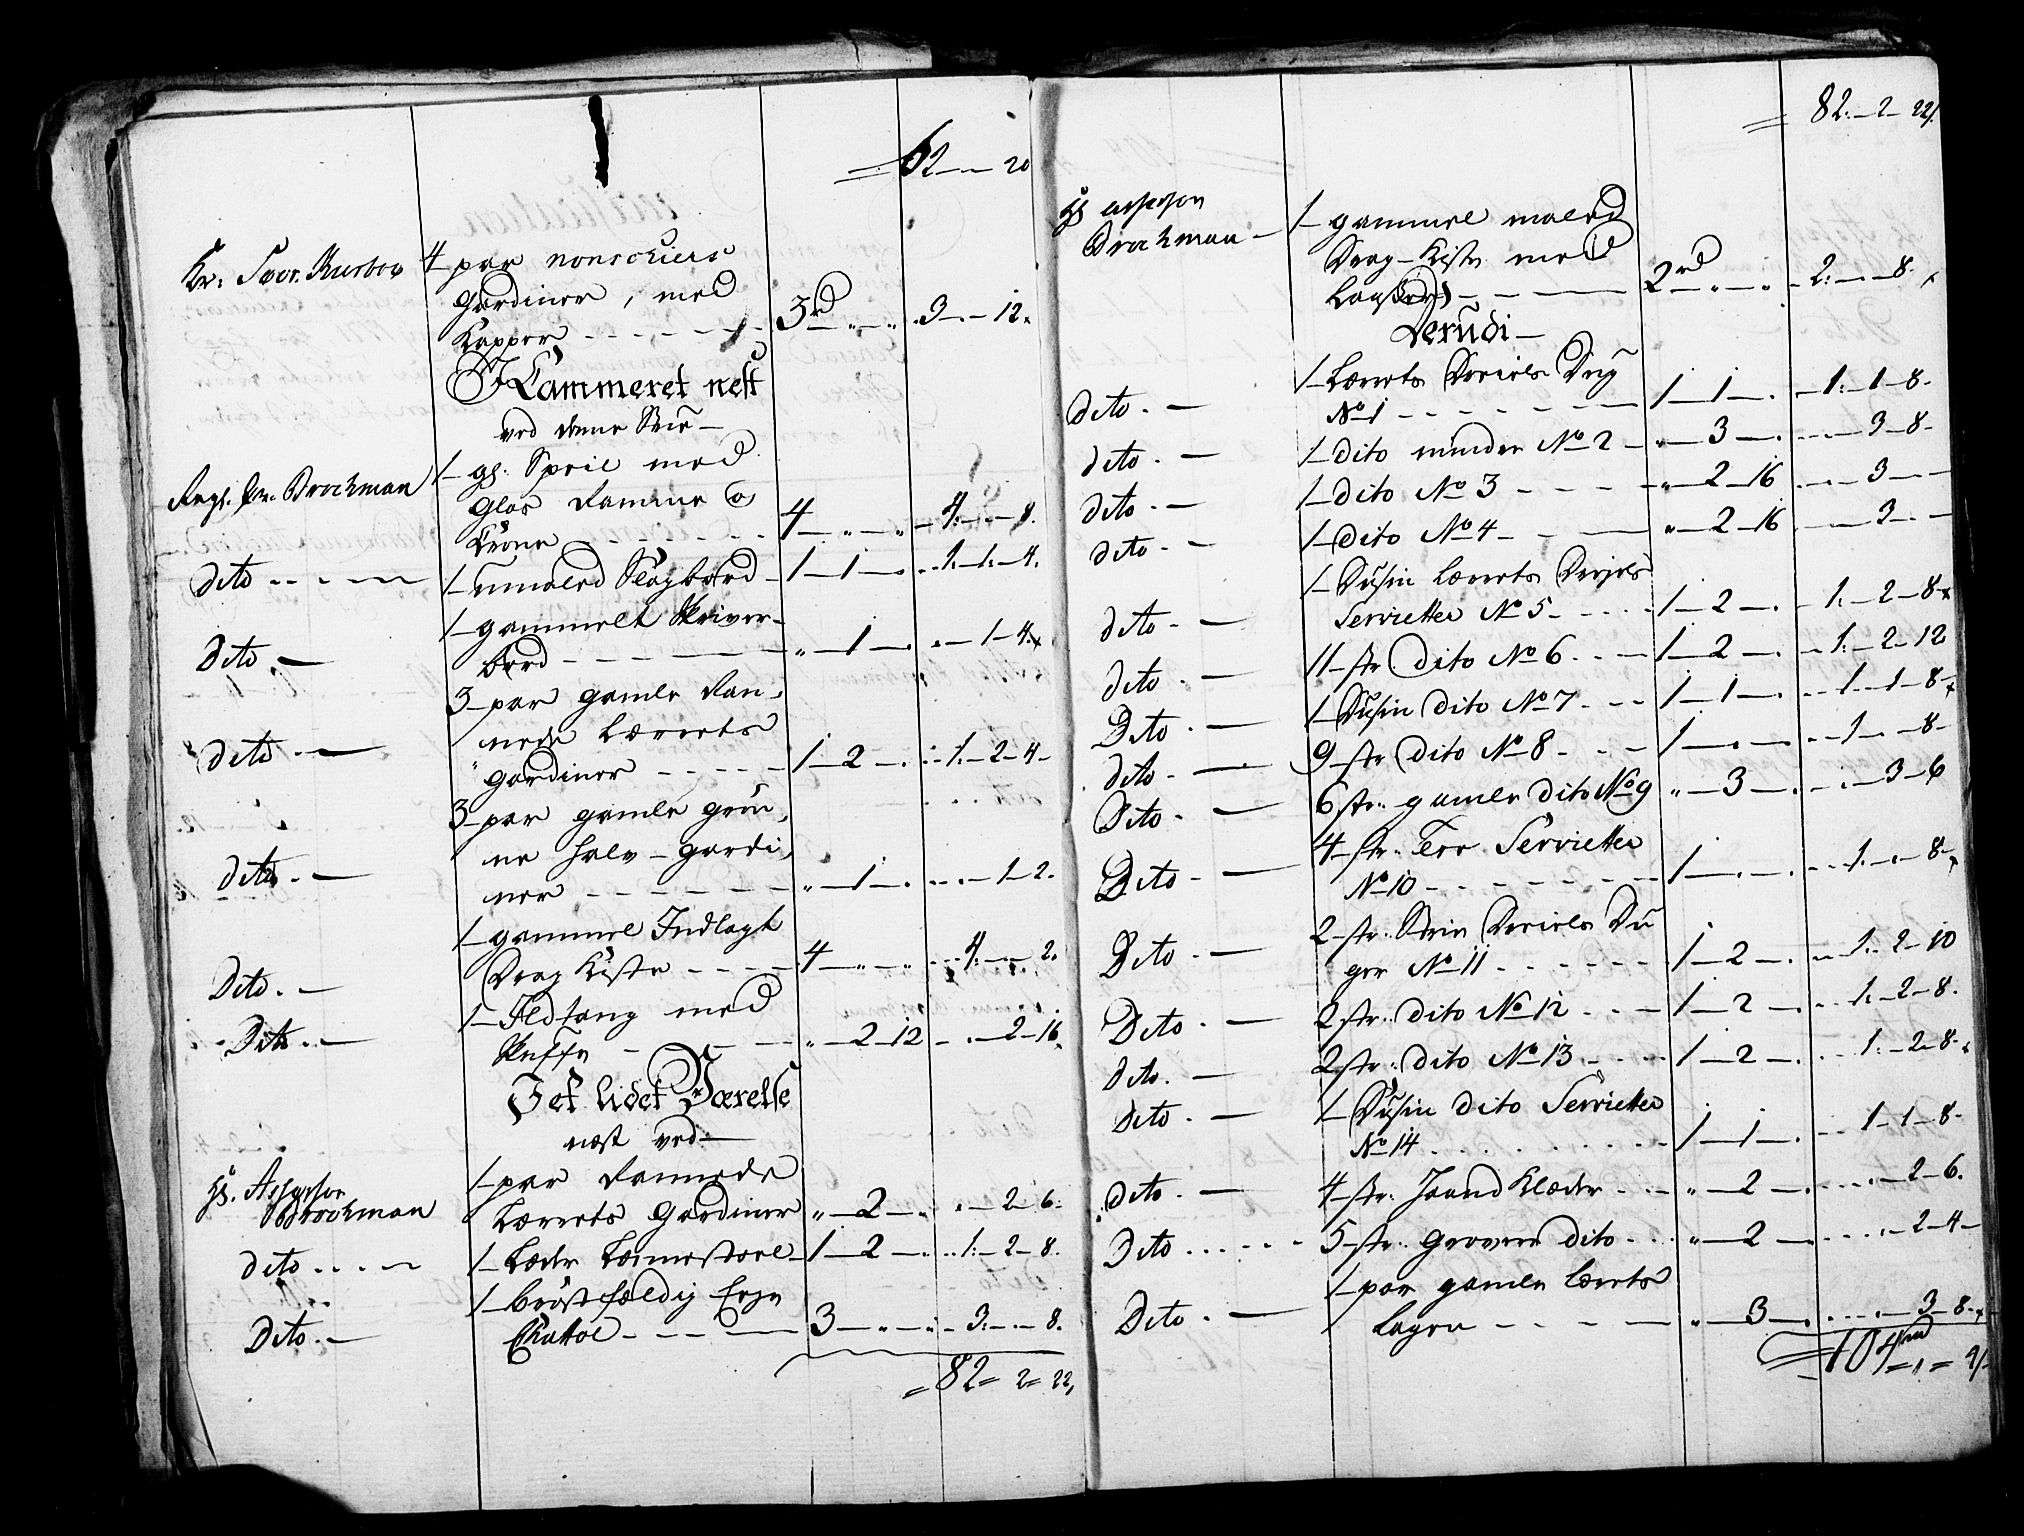 62 - - 20
Hr: Sver. Rusbov 4 par nonsoviers
Gardiner, med
Kapper - - - - 3 rd - " - " 3 - - 12.
I Kammeret nest
ved denne Stue -
1 gl: Speil med
Brochman Glas Ramme og
Krone - - - - 4 - " - " 4 - - 8.
dito - - - 1 umaled Slagbord - 1 - 1 - . 1 - 1 - 4.
1 gammelt Skriver-
Dito. - bord - - - " - 1 - . - 1 - 4.
3 par gamle Ran-
nede Lærrets
dito. - gardiner - - - 1 - 2 - . 1 - 2 - 4 -
3 par gamle grøn-
ne halv-gardi-
dito. - ner - - - " - 1 - . - 1 - 2.
1 gammel Indlagt
Dito. - Drag Kiste - - - 4 - " - " 4 - - 2.
1 Ildtang med
Dito. - Skuffe - - - " - 2 - 12 - 2 - 16.
I et lidet Værelse
næst ved -
Hr. Assessor 1 par Rannede
Brochman Lærrets Gardiner " - 2 - . - 2 - 6.
dito . . . 1 Læder Lænnestoel - 1 - 2 - . 1 - 2 - 8.
1 brøstfældig Ege
Dito. - Chattol - - - 3 - " - " 3 - - 8.
= 82 = 2 = 22,
82. - 2 - 22/.
Hr Assessor 1 gammel malet
Brochman - Drag-Kiste med
Laas - - - 2 rd - " - " 2 - - 8.
Derudi -
1 Lærrets Dreiels Dug
dito. - No 1 - - - 1 - 1 - . 1 - 1 - 8.
dito. - 1 dito minder No 2 - " - 3 - . - 3 - 8.
dito. - 1 dito No 3 - - - " - 2 - 16 - 3 - -
dito. - 1 dito No 4 - - - " - 2 - 16 - 3 - -
1 Dusin Lærrets Dreiels
dito. - Servietter No 5 - - 1 - 2 - . 1 - 2 - 8.
dito. - 11 str dito No 6 . - 1 - 2 - . 1 - 2 - 12
Dito. - 1 Dusin dito No 7 - - 1 - 1 - . 1 - 1 - 8.
dito. - 9 str dito No 8 - - 1 - . - 1 - - 8.
Dito. - 6 str. gamle dito No 9 " - 3 - . - 3 - 6
4 str. Servietter
Dito. - No 10 - - - 1 - . - 1 - - 8.
2 str. Dreiels Du
Dito. - ger No 11 - - - 1 - 2 - . 1 - 2 - 10
Dito. - 2 str. dito No 12 - - 1 - 2 - . 1 - 2 - 8.
dito. - 2 str. dito No 13 - - 1 - 2 - . 1 - 2 - 8.
Dito. - 1 Dusin dito Servietter
No 14 . . . 1 - 1 - . 1 - 1 - 8.
dito. - 4 str. Haand Klæder - " - 2 - . - 2 - 6.
Dito . . . 5 str. grovere dito - " - 2 - . - 2 - 4 -
1 par gamle Lærrets
Dito. - Lagen - - - " - 3 - . - 3 - 8.
104 rd = 1 =